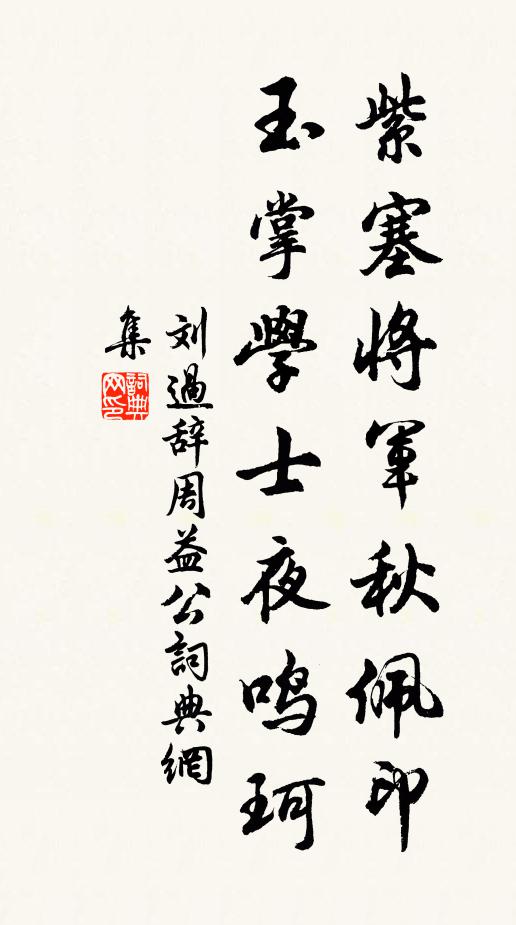 紫塞將軍秋佩印
玉掌學士夜鸣珂
刘過辞周益公詞典網
集
詞典网印